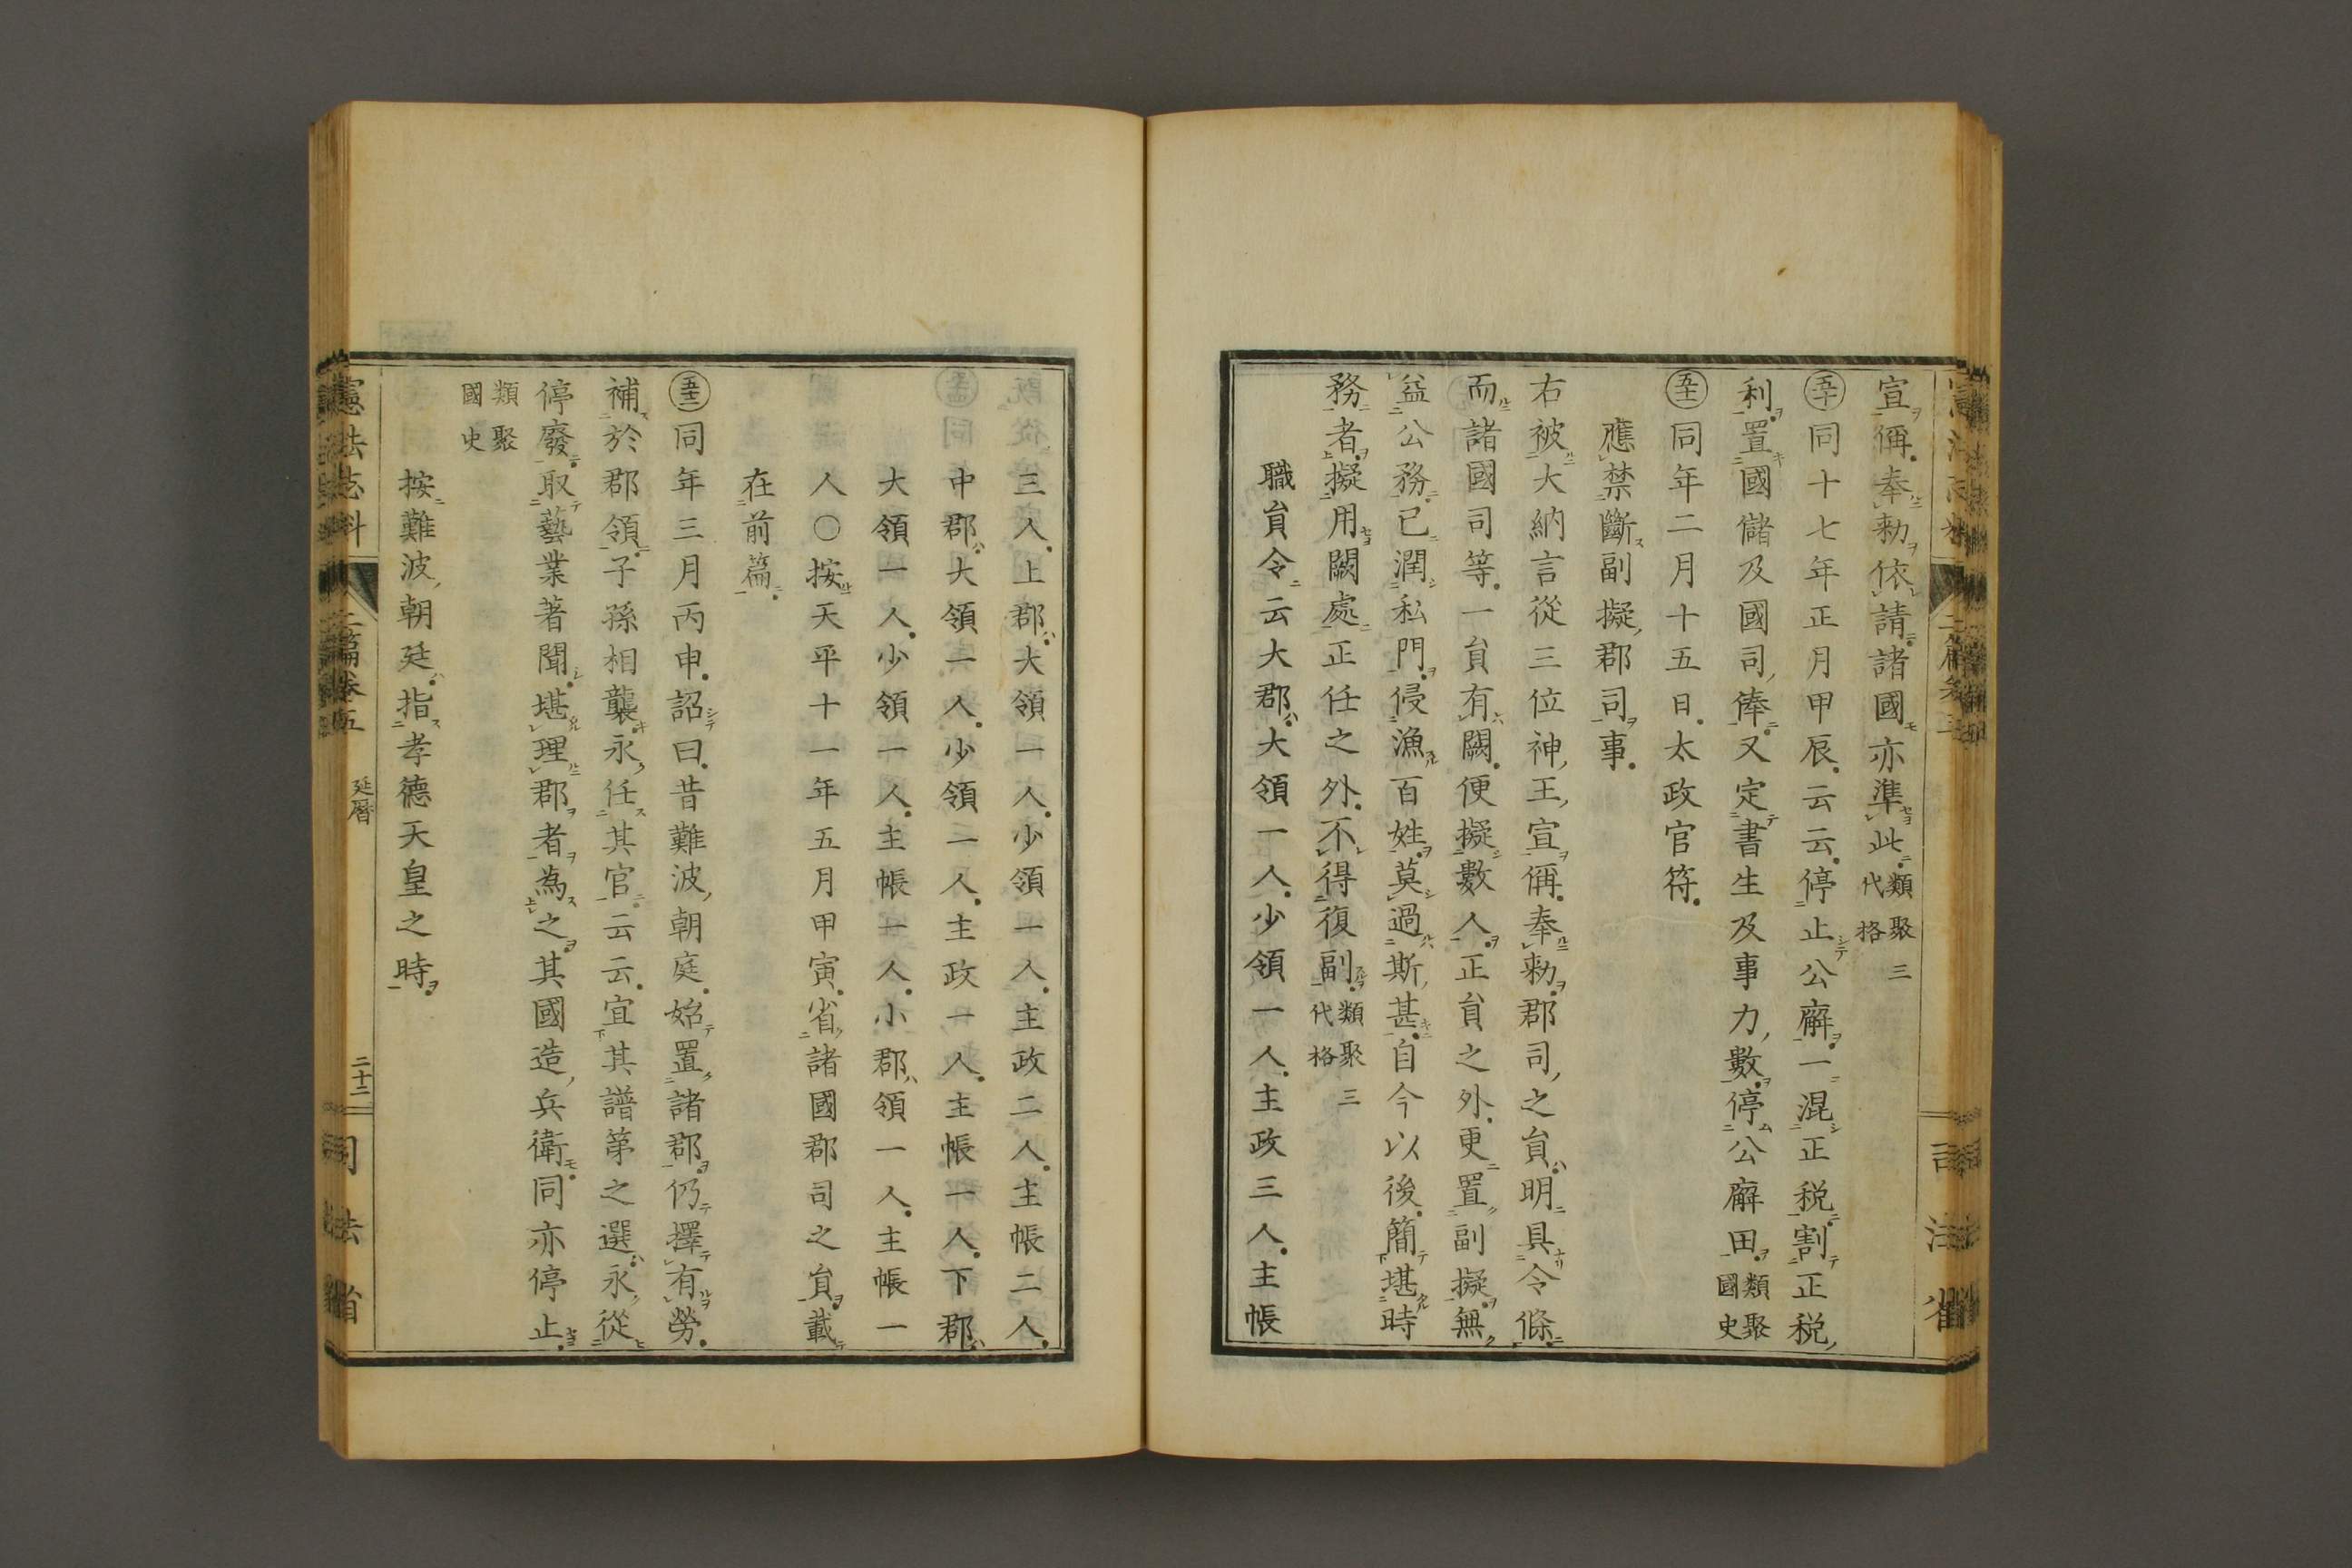 宣偁奉勅依請諸國亦準此類聚三代格
五十同十七年正月甲辰云云停止公廨一混正税割正税
利置國儲及國司俸又定書生及事力數停公廨田類聚國史
五十一同年二月十五日太政官符
應禁斷副擬郡司事
右被大納言從三位神王宣偁奉勅郡司之員明具令條
而諸國司等一員有闕便擬數人正員之外更置副擬無
益公務已潤私門侵漁百姓莫過斯甚自今以後簡堪時
務者擬用闕處正任之外不得復副類聚三代格
職員令云大郡大領一人少領一人主政三人主帳
三人上郡大領一人少領一人主政二人主帳二人
中郡大領一人少領一人主政一人主帳一人下郡
大領一人少領一人主帳一人小郡領一人主帳一
人〇按天平十一年五月甲寅省諸國郡司之員載
在前篇
五十二同年三月丙申詔曰昔難波朝庭始置諸郡仍擇有勞
補於郡領子孫相襲永任其官云云宜其譜第之選永從
停廢取藝業著聞堪理郡者為之其國造兵衛同亦停止
類聚國史
按難波朝廷指孝德天皇之時
憲法志料 二篇卷五 延曆 二十二 司法省